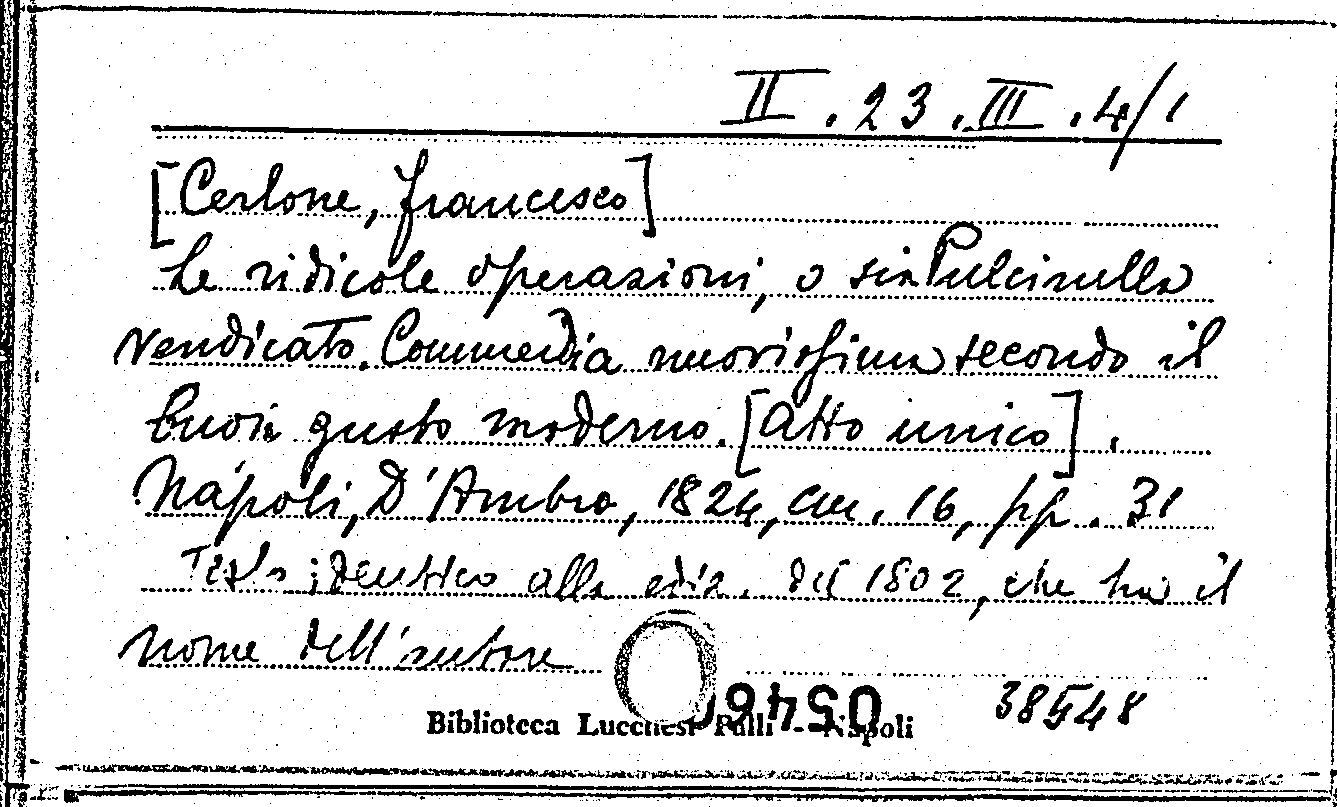 II . 23 . III . 4/1
[Cerlone, Francesco]
Le ridicole operazioni, o sia Pulcinella
vendicato. Commedia nuovissima secondo il
buon gusto moderno. [Atto unico] .
Napoli, D'Ambra, 1824, cm. 16, pp. 31
Testo identico alla ediz. del 1802, che ha il
nome dell'autore
38548
Biblioteca Lucchesi Palli - Napoli